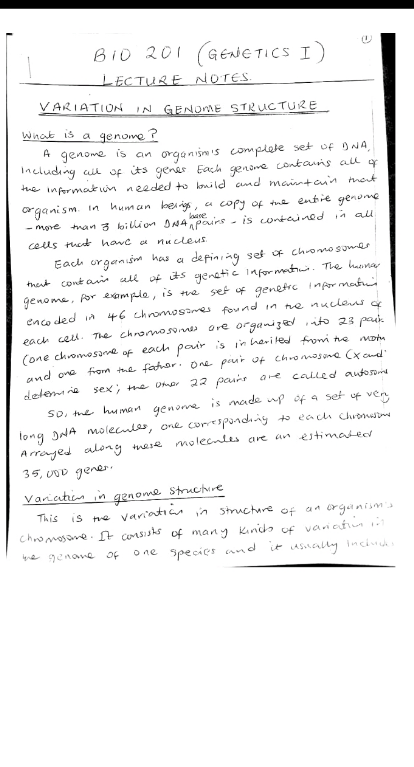 1
BIO 201 (GENETICS I)
LECTURE NOTES.
VARIATION IN GENOME STRUCTURE
What is a genome?
A genome is an organism's complete set of DNA,
Including all of its genes Each genome contains all of
the information needed to build and maintain that
organism. In human beings, a copy of the entire genome
- more than 3 billion DNA base pairs - is contained in all
cells that have a nucleus.
Each organism has a defining set of chromosomes
that contain all of its genetic information. The human
genome, for example, is the set of genetic information
encoded in 46 chromosomes found in the nucleus of
each cell. The chromosomes are organized into 23 pairs
(one chromosome of each pair is inherited from the moth
and one from the father. One pair of chromosome (X and
determine sex; the other 22 pairs are called autosom
So, the human genome is made up of a set of very
long DNA molecules, one corresponding to each chromosome
Arrayed along these molecules are an estimated
35,000 genes.
Variation in genome structure
This is the variation in structure of an organism's
chromosome. It consists of many kinds of variation in
the genome of one species and it usually includes